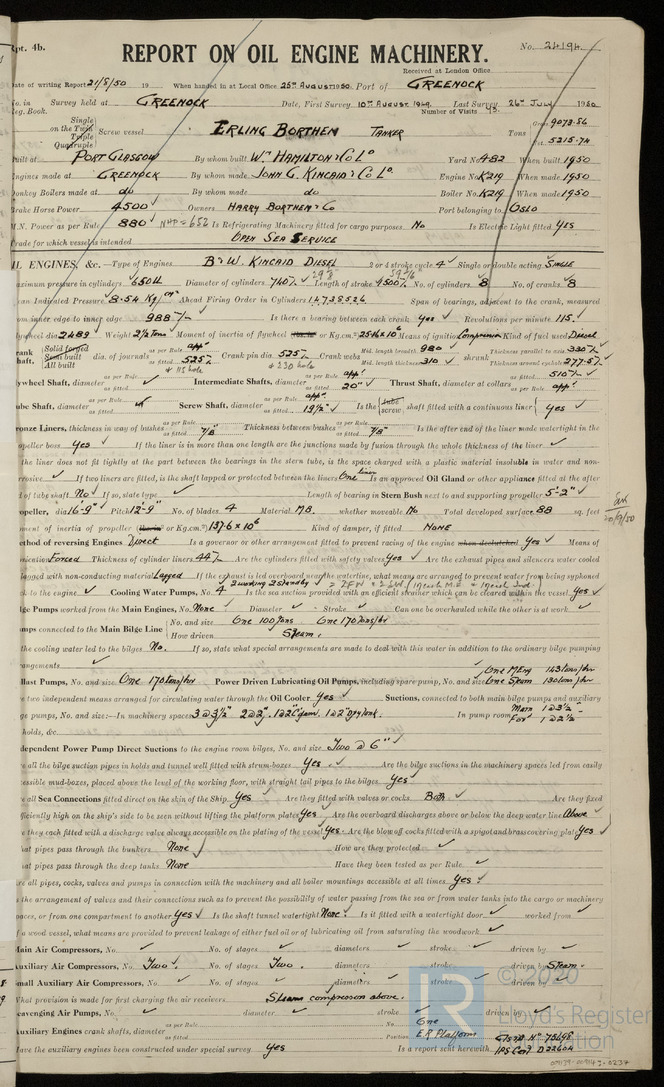 Rpt. 4b.
REPORT ON OIL ENGINE MACHINERY.
No. 24194
Received at London Office
Date of writing Report 21/8/50 19 When handed in at Local Office 25th August 1950. Port of GREENOCK
No. in Survey held at GREENOCK Date, First Survey 10th August 1949. Last Survey 26th July 1950
Reg. Book. Number of Visits 43.
Single on the Twin Triple Quadruple Screw vessel ERLING BORTHEN TANKER Tons Gross 9073.56 Net 5215.74
Built at PORT GLASGOW By whom built Wm HAMILTON & Co Lo Yard No 482 When built 1950
Engines made at GREENOCK By whom made JOHN G. KINCAID & Co Lo Engine No K219 When made 1950
Donkey Boilers made at do By whom made do Boiler No. K219 When made 1950
Brake Horse Power 4500 Owners HARRY BORTHEN & Co Port belonging to OSLO
M.N. Power as per Rule 880 NHP = 652 Is Refrigerating Machinery fitted for cargo purposes No Is Electric Light fitted Yes
Trade for which vessel is intended OPEN SEA SERVICE
OIL ENGINES, &c.—Type of Engines B & W. KINCAID DIESEL 2 or 4 stroke cycle 4 Single or double acting SINGLE
Maximum pressure in cylinders Diameter of cylinders 740 Length of stroke 1500 No. of cylinders 8 No. of cranks 8
Mean Indicated Pressure 8.54 Kg/cm² Ahead Firing Order in Cylinders 1.4.7.3.8.5.2.6 Span of bearings, adjacent to the crank, measured
from inner edge to inner edge 988 Is there a bearing between each crank Yes Revolutions per minute 115
Flywheel dia 2489 Weight 2½ tons Moment of inertia of flywheel or Kg.cm.² 25.16 x 10⁶ Means of ignition Compression Kind of fuel used Diesel
Crank Shaft. Solid forged Semi built All built dia. of journals as per Rule appd as fitted 525 Crank pin dia 525 Crank webs Mid. length breadth 980 Mid. length thickness 310 shrunk Thickness parallel to axis 330 Thickness around eyehole 277.5
Flywheel Shaft, diameter as per Rule as fitted Intermediate Shafts, diameter as per Rule appd as fitted 20" Thrust Shaft, diameter at collars as fitted 510 as per Rule appd
Tube Shaft, diameter as per Rule as fitted Screw Shaft, diameter as per Rule appd as fitted Is the tube screw shaft fitted with a continuous liner Yes
Bronze Liners, thickness in way of bushes as per Rule as fitted 7/8" Thickness between bushes as per Rule as fitted 7/8" Is the after end of the liner made watertight in the
propeller boss Yes If the liner is in more than one length are the junctions made by fusion through the whole thickness of the liner
If the liner does not fit tightly at the part between the bearings in the stern tube, is the space charged with a plastic material insoluble in water and non-
corrosive If two liners are fitted, is the shaft lapped or protected between the liners One liner Is an approved Oil Gland or other appliance fitted at the after
end of tube shaft No If so, state type Length of bearing in Stern Bush next to and supporting propeller 5'-2"
Propeller, dia 16'-9" Pitch 12'-9" No. of blades 4 Material M.B. whether moveable No Total developed surface 88 sq. feet
Moment of inertia of propeller or Kg.cm.² 137.6 x 10⁶ Kind of damper, if fitted NONE
Method of reversing Engines Direct Is a governor or other arrangement fitted to prevent racing of the engine when declutched Yes Means of
lubrication Forced Thickness of cylinder liners 44 Are the cylinders fitted with safety valves Yes Are the exhaust pipes and silencers water cooled
or lagged with non-conducting material Lagged If the exhaust is led overboard near the waterline, what means are arranged to prevent water from being syphoned
back to the engine Cooling Water Pumps, No. 4 2 working 2 Standby Is the sea suction provided with an efficient strainer which can be cleared within the vessel Yes
Bilge Pumps worked from the Main Engines, No. None Diameter Stroke Can one be overhauled while the other is at work
Pumps connected to the Main Bilge Line No. and size One 100 tons One 170 tons/hr How driven Steam
Is the cooling water led to the bilges No. If so, state what special arrangements are made to deal with this water in addition to the ordinary bilge pumping
arrangements
Ballast Pumps, No. and size One 170 tons/hr Power Driven Lubricating Oil Pumps, including spare pump, No. and size One M Eng 143 tons/hr One Steam 130 tons/hr
Are two independent means arranged for circulating water through the Oil Cooler Yes Suctions, connected to both main bilge pumps and auxiliary
bilge pumps, No. and size:—In machinery spaces 3 @ 3½" 2 @ 2½" In pump room Main 1 @ 3½" For'd 1 @ 2½"
In holds, &c.
Independent Power Pump Direct Suctions to the engine room bilges, No. and size Two @ 6"
Are all the bilge suction pipes in holds and tunnel well fitted with strum-boxes Yes Are the bilge suctions in the machinery spaces led from easily
accessible mud-boxes, placed above the level of the working floor, with straight tail pipes to the bilges Yes
Are all Sea Connections fitted direct on the skin of the Ship Yes Are they fitted with valves or cocks Both Are they fixed
sufficiently high on the ship's side to be seen without lifting the platform plates Yes Are the overboard discharges above or below the deep water line Above
Are they each fitted with a discharge valve always accessible on the plating of the vessel Yes Are the blow off cocks fitted with a spigot and brass covering plate Yes
What pipes pass through the bunkers None How are they protected
What pipes pass through the deep tanks None Have they been tested as per Rule
Are all pipes, cocks, valves and pumps in connection with the machinery and all boiler mountings accessible at all times Yes
Is the arrangement of valves and their connections such as to prevent the possibility of water passing from the sea or from water tanks into the cargo or machinery
spaces, or from one compartment to another Yes Is the shaft tunnel watertight None Is it fitted with a watertight door worked from
If a wood vessel, what means are provided to prevent leakage of either fuel oil or of lubricating oil from saturating the woodwork
Main Air Compressors, No. No. of stages diameters stroke driven by
Auxiliary Air Compressors, No. Two No. of stages Two diameters stroke driven by Steam
Small Auxiliary Air Compressors, No. No. of stages diameters stroke driven by
What provision is made for first charging the air receivers Steam compressor above.
Scavenging Air Pumps, No. diameter stroke driven by
Auxiliary Engines crank shafts, diameter as per Rule as fitted No. One Position E.R Platform
Have the auxiliary engines been constructed under special survey Yes Is a report sent herewith
© 2020
Lloyd's Register
Foundation